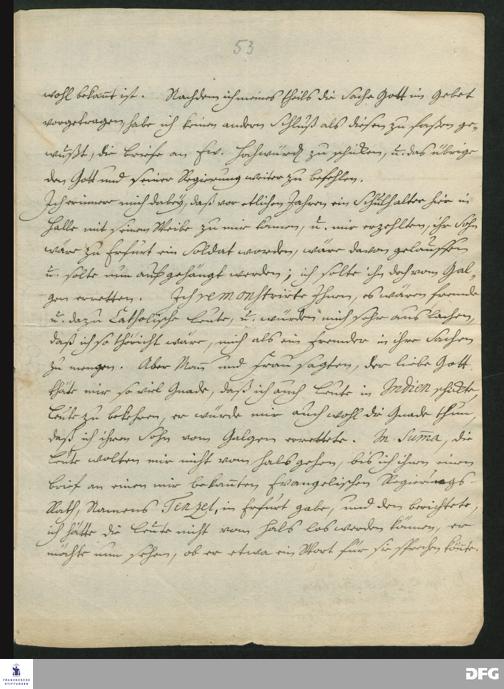 53
wohl bekannt ist. Nachdem ich meines theils die Sache Gott im Gebet
vorgetragen, habe ich keinen andern Schluß als diesen zu faßen ge-
wußt, die briefe an Ew. Hochwürd zu schicken, u. das übrige
dem Gott und seiner Regierung weiter zu befehlen.
Ich erinnere mich dabey, daß vor etlichen Jahren ein Schulhalter hier in
Halle mit seinem Weibe zu mir kamen, u. mir erzehlten, ihr Sohn
wäre zu Erfurt ein Soldat worden, wäre davon gelauffen
u. solte nun aufgehängt werden; ich solte ihn doch vom Gal-
gen erretten. Ich remonstrirte Ihnen, es wären fremde
u. dazu Catholische leute, u. würden mich sehr auslachen,
daß ich so thöricht wäre, mich als ein fremder in ihre Sachen
zu mengen. Aber Mann und frau sagten, der liebe Gott
thäte mir so viel Gnade, daß ich auch leute in Indien schickte
leute zu bekehren, er würde mir auch wohl die Gnade thun,
daß ich ihren Sohn vom Galgen errettete. In Summa, die
leute wolten mir nicht vom Hals gehen, bis ich ihnen einen
brief an einen mir bekannten Evangelischen Regierungs
Rath, Namens Tenzel, in Erfurt gabe, und dem berichtete,
ich hätte die leute nicht vom Hals los werden können, er
möchte nun sehen, ob er etwa ein Wort für sie sprechen könte.
FRANCKESCHE
STIFTUNGEN
DFG